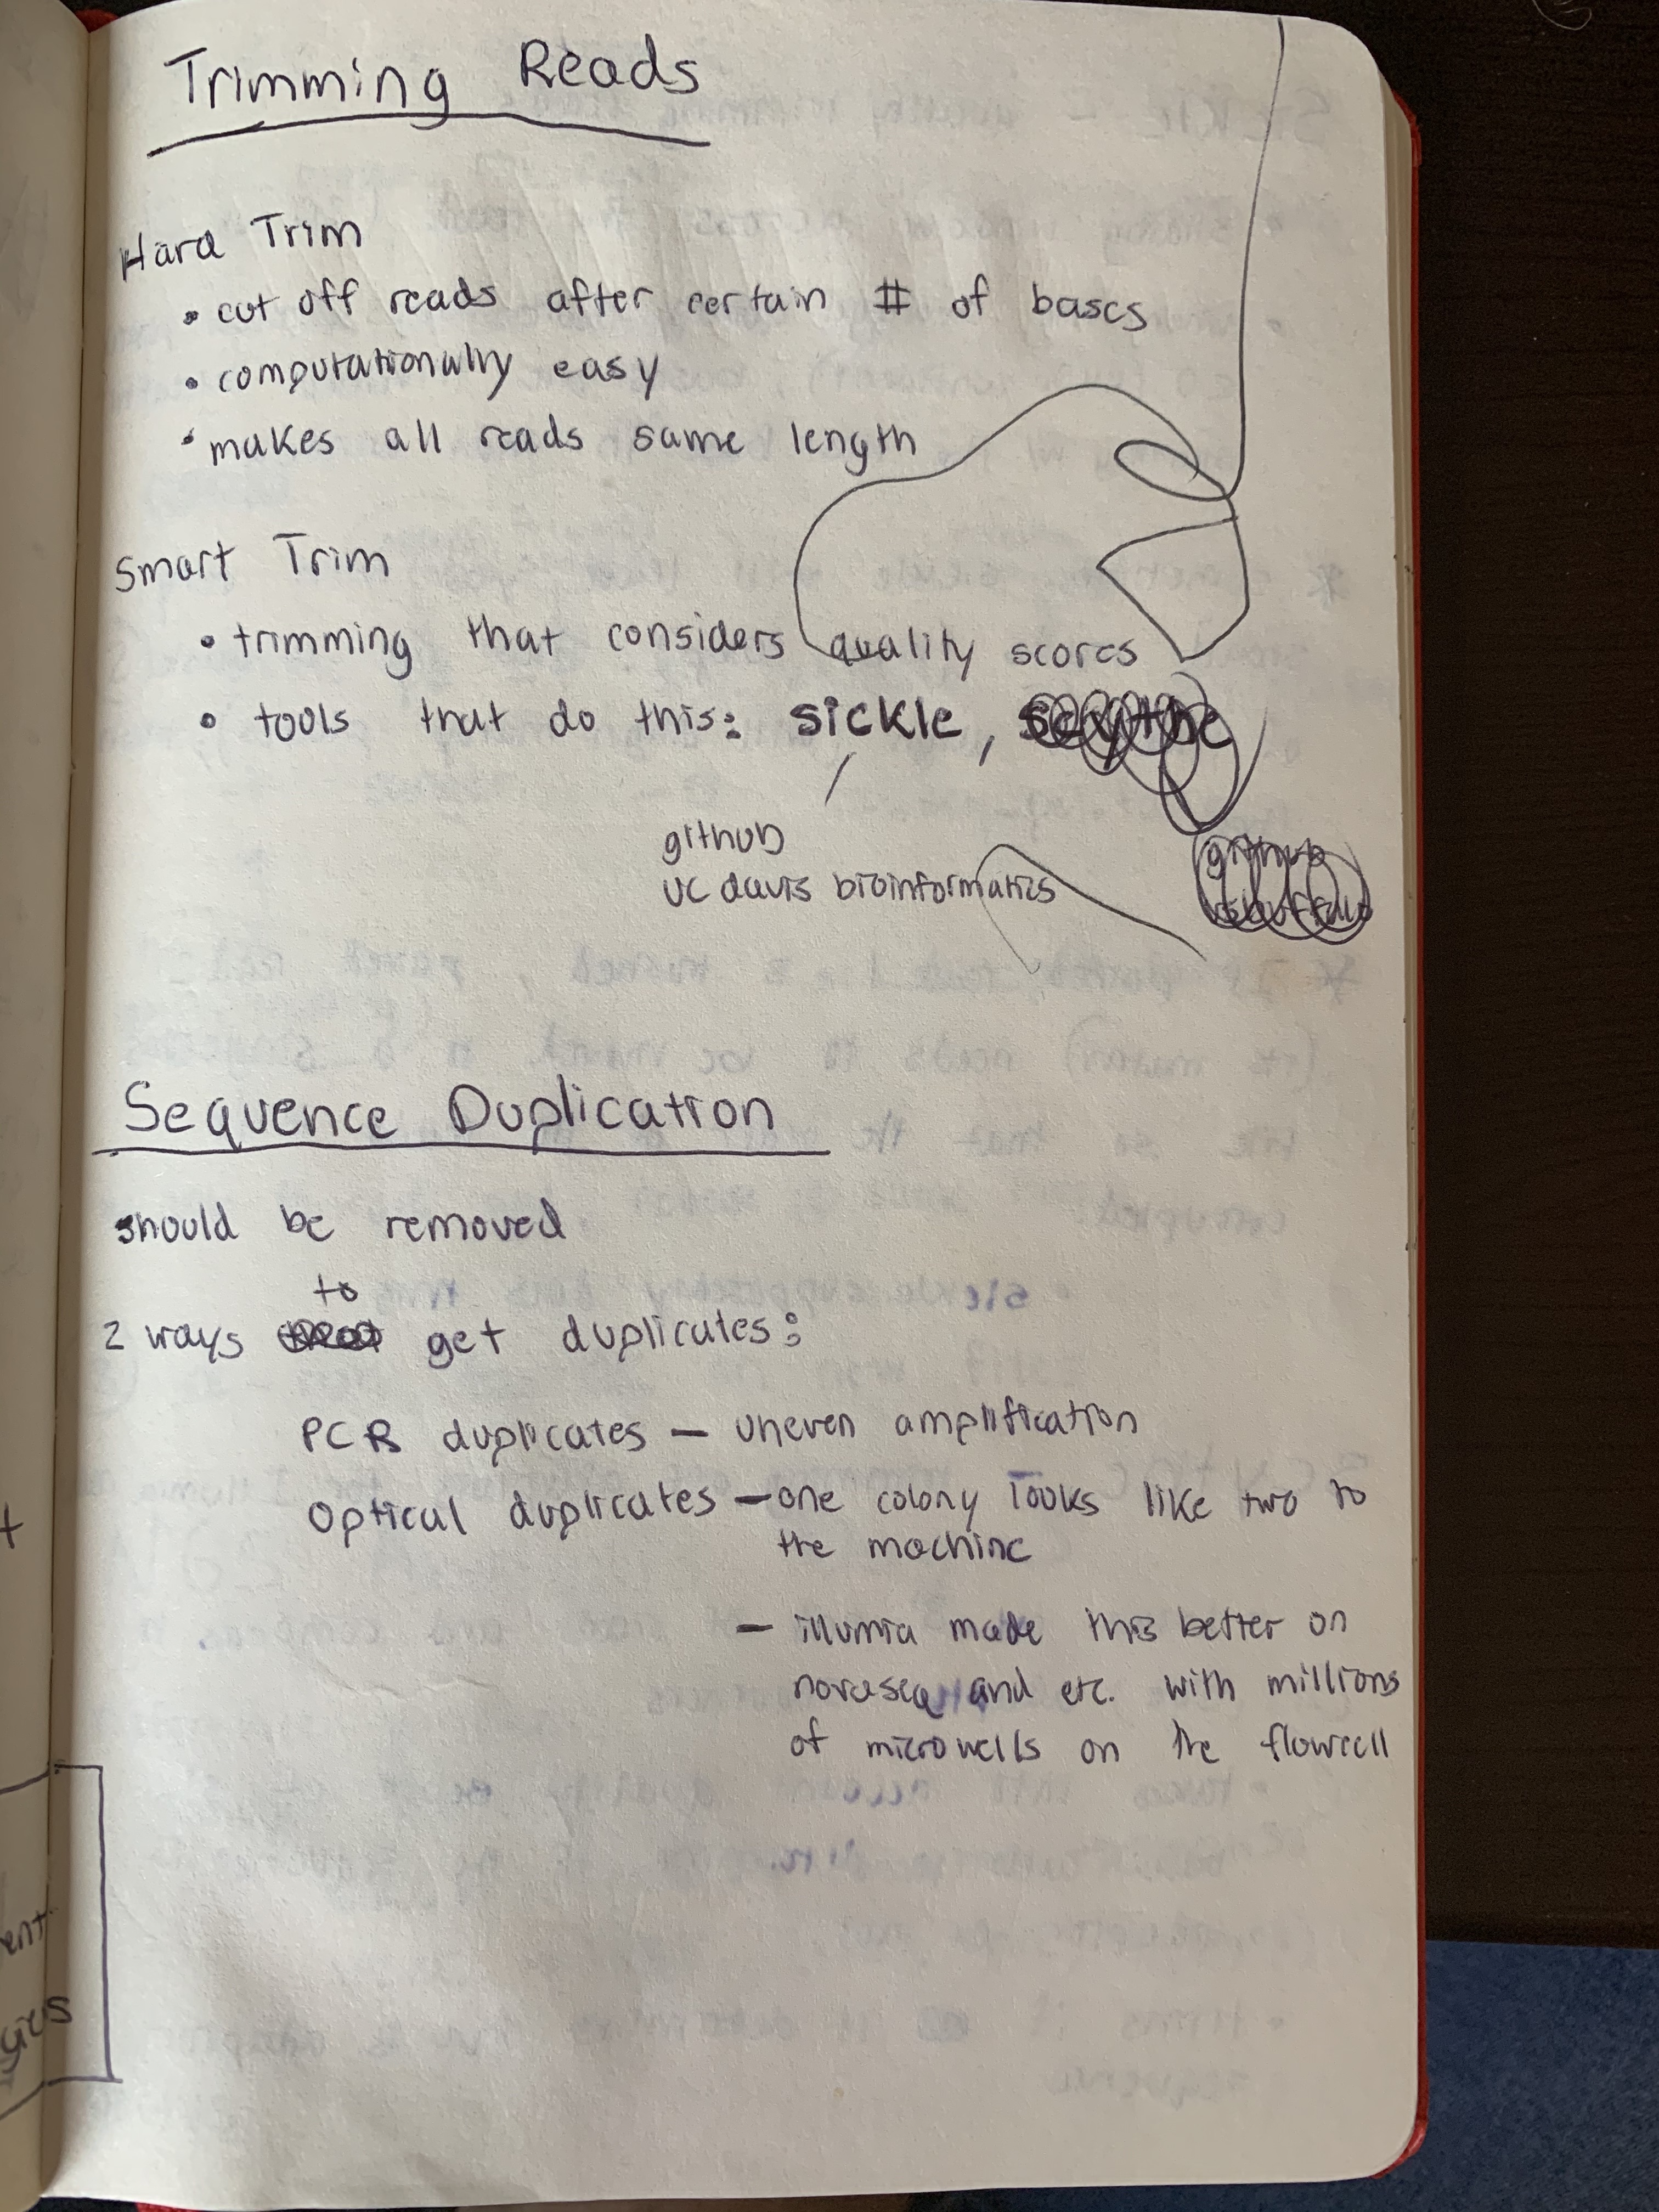 Trimming Reads
Hard Trim
• cut off reads after certain # of bases
• computationally easy
• makes all reads same length
Smart Trim
• trimming that considers quality scores
• tools that do this: sickle, scythe
github
UC davis bioinformatics
github
Sequence Duplication
should be removed
to
2 ways get duplicates:
PCR duplicates — uneven amplification
Optical duplicates — one colony looks like two to
the machine
— illumia made this better on
novaseq and etc. with millions
of microwells on the flowcell